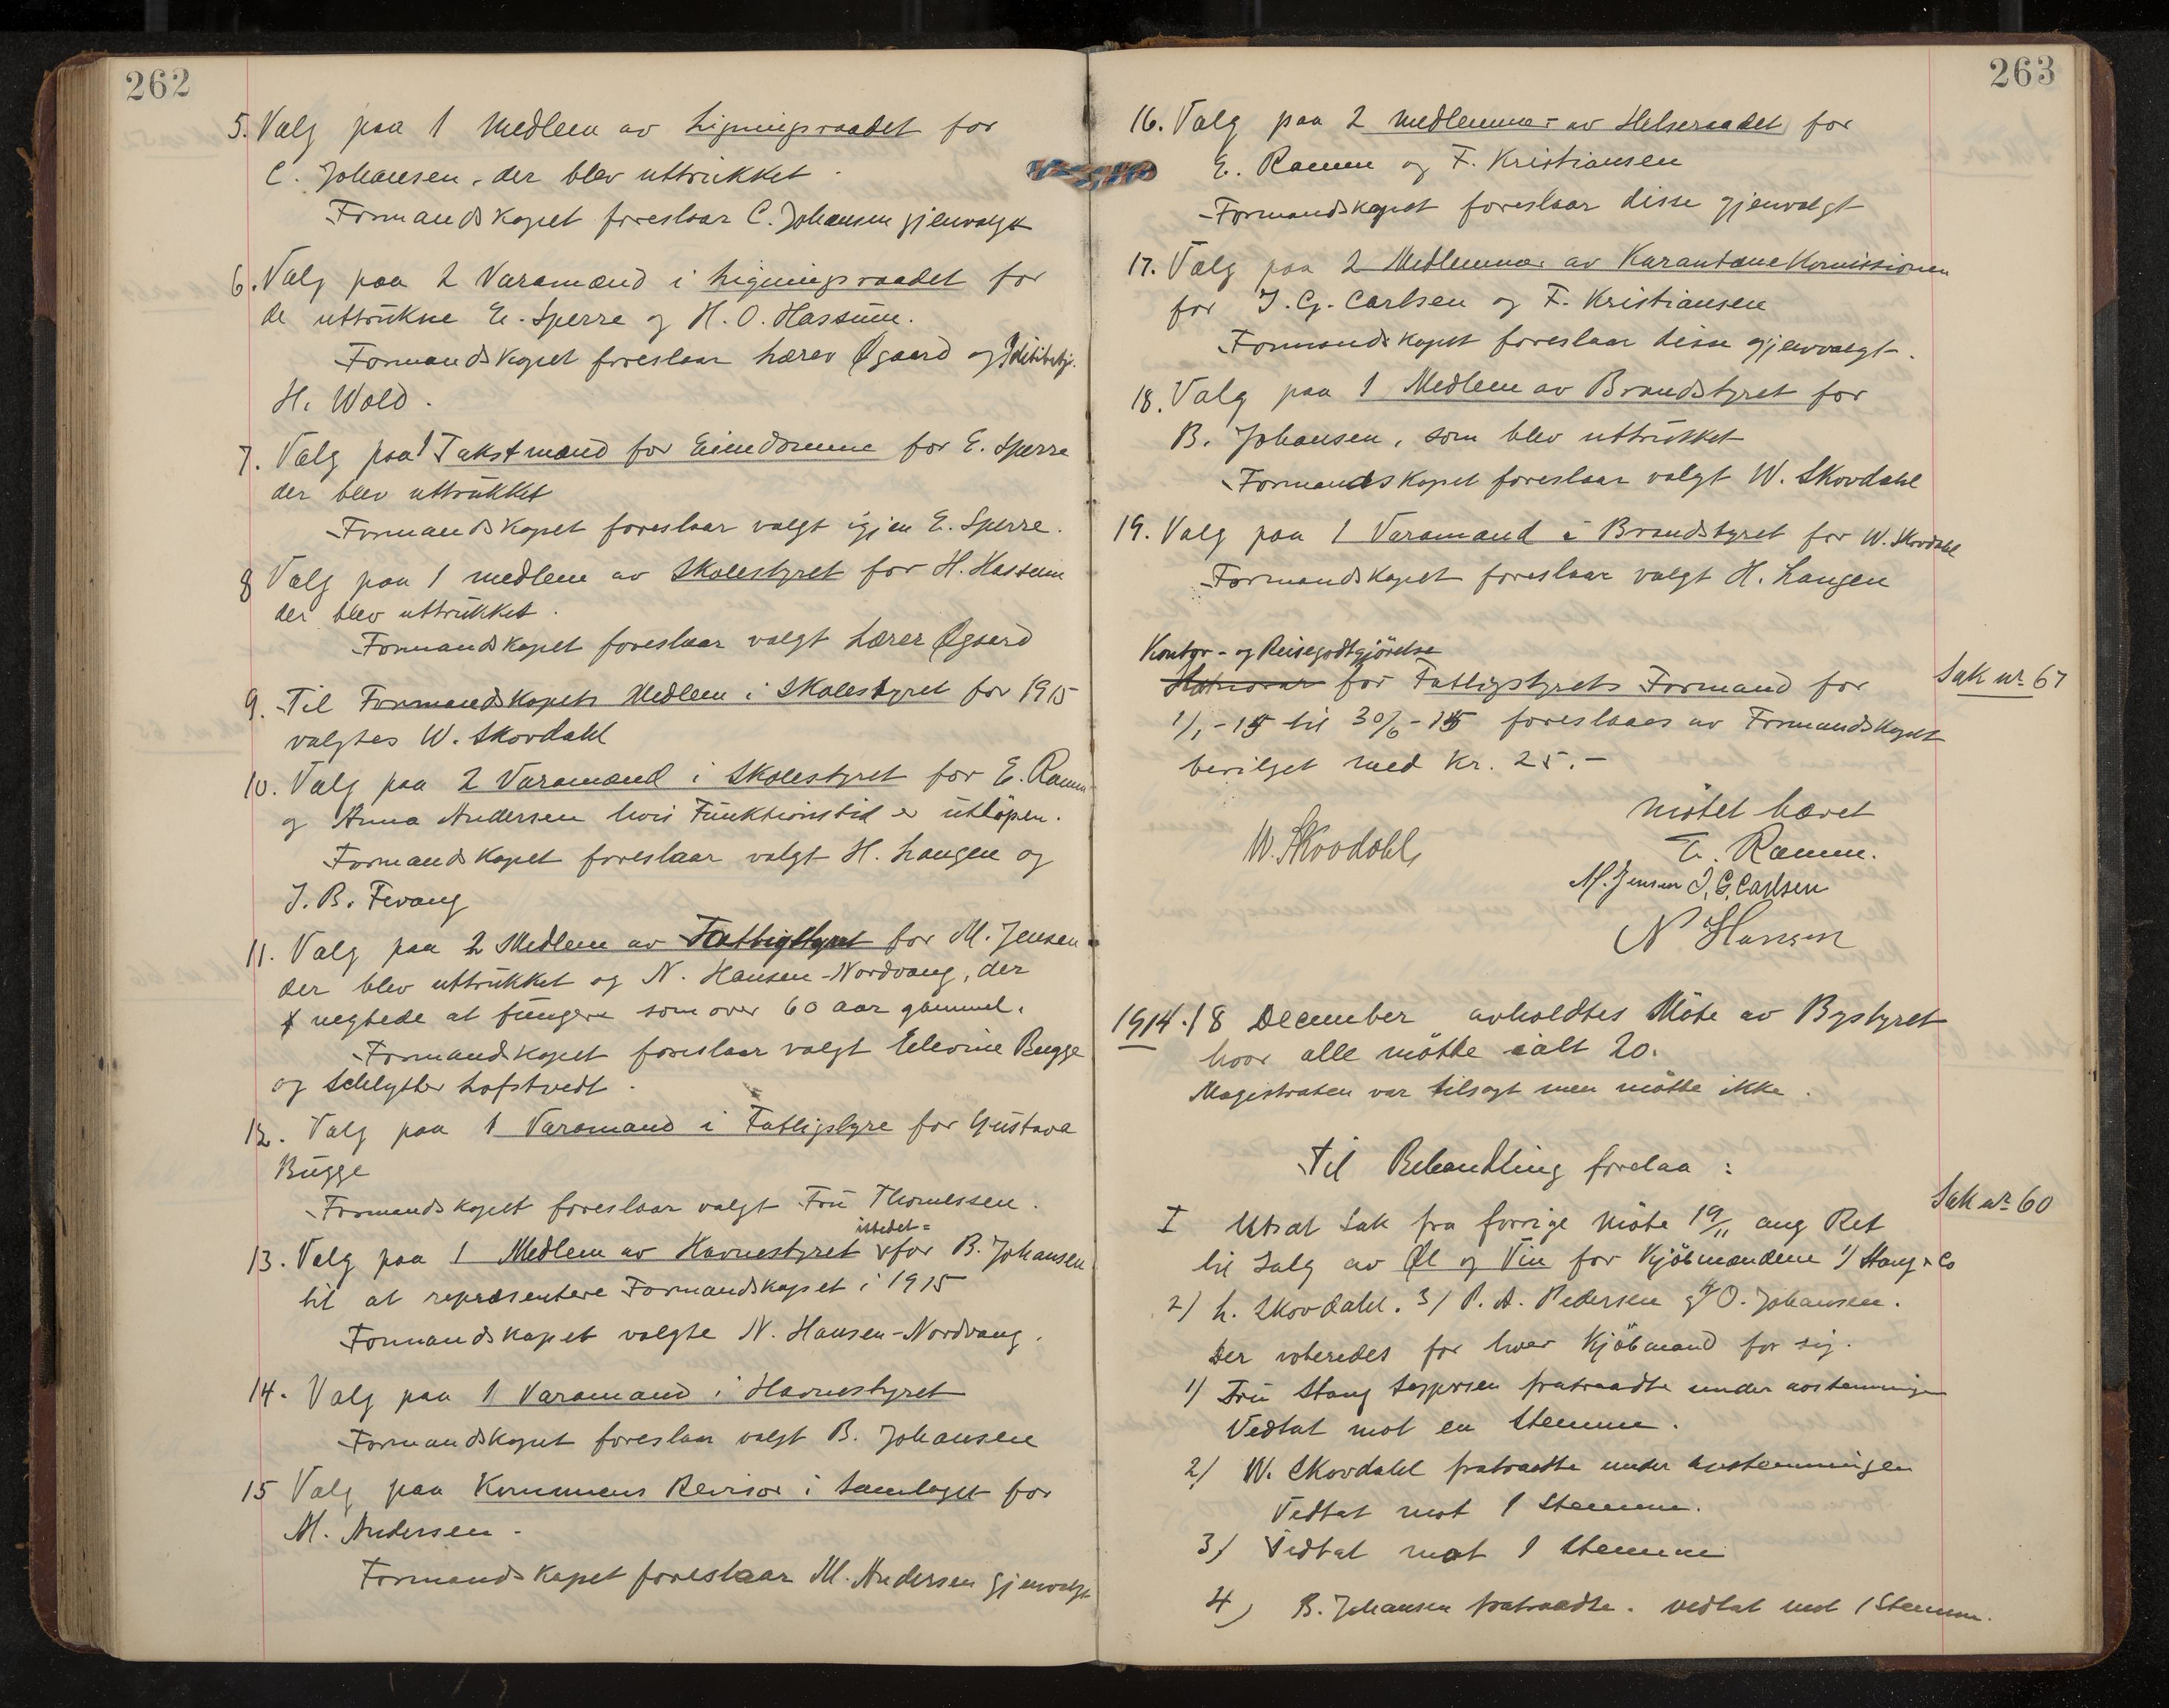 262
5. Valg paa 1 Medlem av Ligningsraadet for
C. Johansen, der blev uttrukket.
Formandskapet foreslaar C. Johansen gjenvalgt
6. Valg paa 2 Varamænd i Ligningsraadet for
de uttrukne E. Sperre og H. O. Hassum.
Formandskapet foreslaar Lærer Øgaard og
H. Wold.
7. Valg paa 1 Takstmand for Eiendomme for E. Sperre
der blev uttrukket
Formandskapet foreslaar valgt igjen E. Sperre.
8 Valg paa 1 medlem av Skolestyret for H. Hassum
der blev uttrukket.
Formandskapet foreslaar valgt Lærer Øgaard
9. Til Formandskapets Medlem i Skolestyret for 1915
valgtes W. Skovdahl
10. Valg paa 2 Varamænd i Skolestyret for E. Ramm
og Anna Andersen hvis Funktionstid er utløpen.
Formandskapet foreslaar valgt H. Langen og
J. B. Fevang
11. Valg paa 2 Medlem av Fattigstyret for M. Jensen
der blev uttrukket og N. Hansen-Nordvang, der
negtede at fungere som over 60 aar gammel.
Formandskapet foreslaar valgt Elevine Bugge
og Schlytter Lofstvedt.
12. Valg paa 1 Varamand i Fattigstyre for Gustava
Bugge
Formandskapet foreslaar valgt Fru Thomessen.
istedet=
13. Valg paa 1 Medlem av Havnestyret for B. Johansen
til at repræsentere Formandskapet i 1915
Formandskapet valgte N. Hansen-Nordvang.
14. Valg paa 1 Varamand i Havnestyret
Formandskapet foreslaar valgt B. Johansen
15 Valg paa Kommunens Revisor i Samlaget for
M. Andersen.
Formandskapet foreslaar M. Andersen gjenvalgt
263
16. Valg paa 2 Medlemmer av Helseraadet for
E. Ramm og F. Kristiansen
Formandskapet foreslaar disse gjenvalgt
17. Valg paa 2 Medlemmer av Karantænekomissionen
for J. G. Carlsen og F. Kristiansen
Formandskapet foreslaar disse gjenvalgt.
18. Valg paa 1 Medlem av Brandstyret for
B. Johansen, som blev uttrukket
Formandskapet foreslaar valgt W. Skovdahl
19. Valg paa 1 Varamand i Brandstyret for W. Skovdahl
Formandskapet foreslaar valgt H. Langen
Kontor- og Reisegodtgjörelse
Honorar for Fattigstyrets Formand for
Sak nr 67
1/1 - 15 til 30/6 - 15 foreslaaes av Formandskapet
bevilget med Kr. 25.-
Mötet hævet
W. Skovdahl
E. Ramm.
M. Jensen J. G. Carlsen
N Hansen
1914. 18 December avholdtes Möte av Bystyret
hvor alle mötte ialt 20.
Magistraten var tilsagt men mötte ikke.
Til Behandling forelaa:
Sak nr 60
I Utsat Sak fra forrige Möte 19/11 ang Ret
til Salg av Øl og Vin for Kjöbmændene 1) Stang & Co
2) L. Skovdahl. 3) P. A. Pedersen 4) O. Johansen.
Der voteredes for hver Kjöbmand for sig.
1) Fru Stang fratraadte under avstemningen
Vedtat mot en Stemme.
2) W. Skovdahl fratraadte under avstemningen
Vedtat mot 1 Stemme.
3) Vedtat mot 1 Stemme
4) B. Johansen fratraadte. Vedtat mot 1 Stemme.